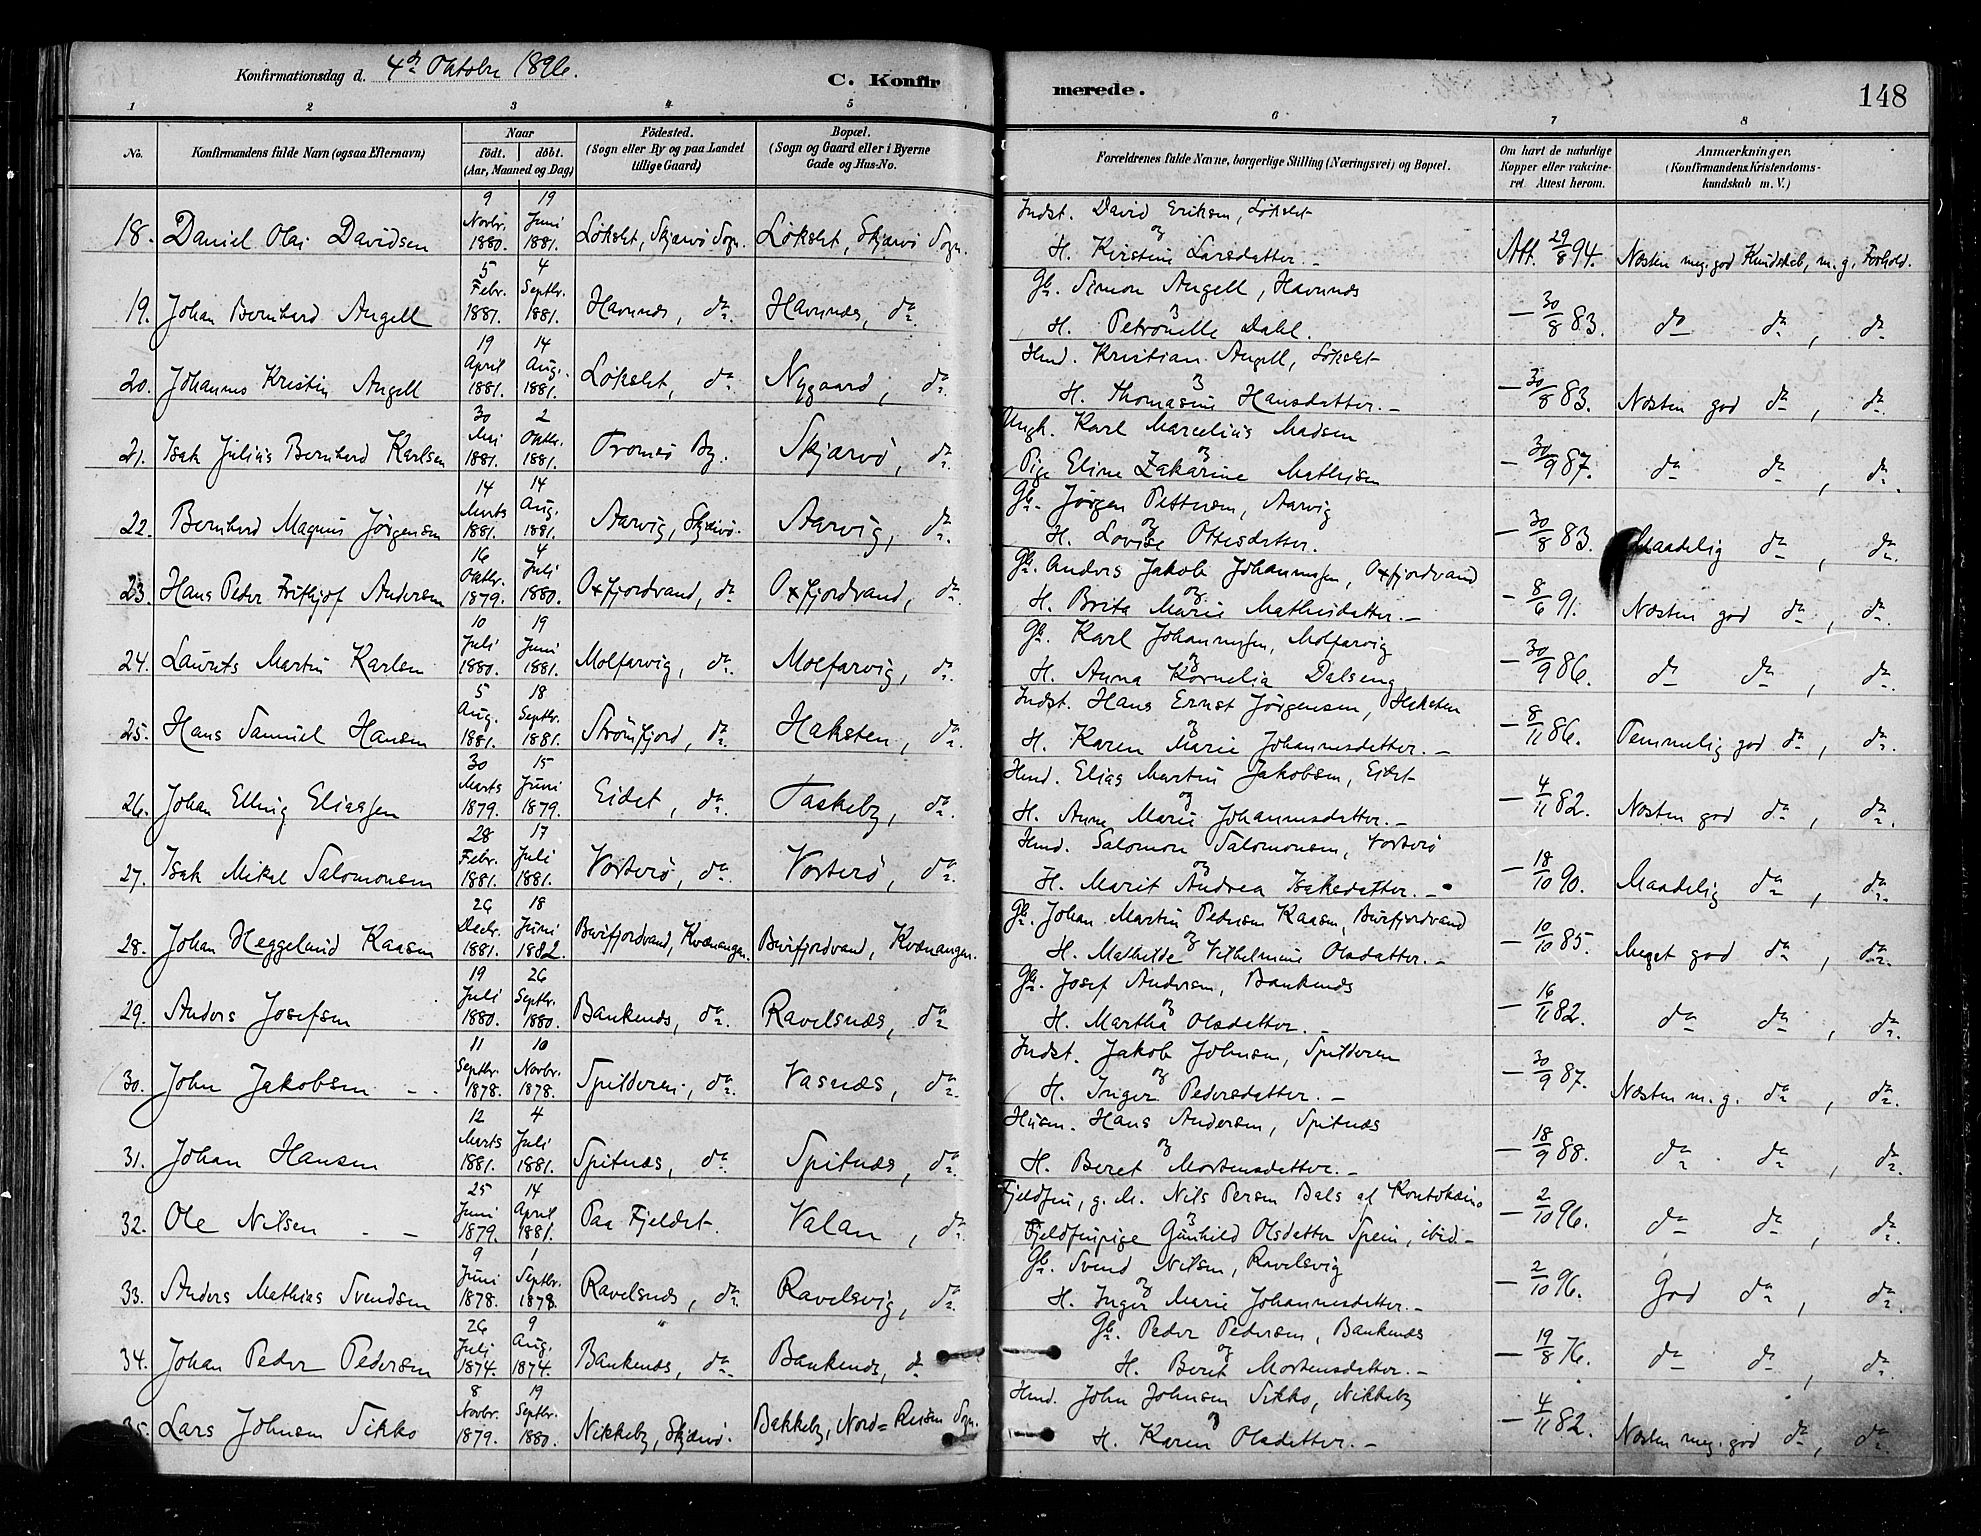 Konfirmationsdag d. 4de Oktober 1896.
C. Konfirmerede.
148
1 2 3 4 5 6 7 8
No.
Konfirmandens fulde Navn (ogsaa Efternavn)
Naar
födt. döbt.
(Aar, Maaned og Dag)
Födested.
(Sogn eller By og paa Landet
tillige Gaard)
Bopæl.
(Sogn og Gaard eller i Byerne
Gade og Hus-No.
Forældrenes fulde Navne, borgerlige Stilling (Næringsvei) og Bopæl.
Om havt de naturlige
Kopper eller vakcine-
ret. Attest herom.
Anmærkninger.
(Konfirmandens Kristendoms-
kundskab m. V.)
18. Daniel Olai Davidsen 9 Novbr. 1880. 19 Juni 1881. Løkslet, Skjærvö Sogn. Løkslet, Skjærvö Sogn. Indst. David Eriksen, Løkslet og H. Kirstine Larsdatter. Att. 29/8 94. Næsten meg. god Kundskab, m. g. Forhold.
19. Johan Bernhard Angell 5 Febr. 1881. 4 Septbr. 1881. Havnnæs, do. Havnnæs, do. Gbr. Simon Angell, Havnnæs og H. Petronelle Dahl. — 30/8 83. do do, do
20. Johannes Kristin Angell 19 April 1881. 14 Aug. 1881. Løkslet, do. Nygaard, do. Hmd. Kristian Angell, Løkslet og H. Thomasine Hansdatter. — 30/8 83. Næsten god do, do.
21. Isak Julius Bernhard Karlsen 30 Mai 1881. 2 Oktbr. 1881. Tromsö By. Skjærvö, do. Ungk. Karl Marcelius Madsen og Pige Eline Zakarine Mathisen — 30/9 87. do do, do.
22. Bernhard Magnus Jörgensen 14 Marts 1881. 14 Aug. 1881. Aarvig, Skjærvö. Aarvig, do. Gbr. Jörgen Pettersen, Aarvig og H. Lovise Ottesdatter. — 30/8 83. Maadelig do, do.
23. Hans Peder Frithjof Andersen 16 Oktbr. 1879. 4 Juli 1880. Oxfjordvand, do Oxfjordvand, do. Gbr. Anders Jakob Johannessen, Oxfjordvand og H. Brita Marie Mathisdatter. — 8/6 91. Næsten god do, do.
24. Laurits Martin Karlsen 10 Juli 1880. 19 Juni 1881. Molfarvig, do. Molfarvig, do. Gbr. Karl Johannessen, Molfarvig og H. Anna Kornelia Dalseng — 30/9 86. do do, do.
25. Hans Samuel Hansen 5 Aug. 1881. 18 Septbr. 1881. Strömfjord, do. Haksten, do. Indst. Hans Ernst Jørgensen, Haksten og H. Karen Marie Johannesdatter. — 8/11 86. Temmelig god do, do.
26. Johan Elling Eliassen 30 Marts 1879. 15 Juni 1879. Eidet, do. Taskeby, do. Hmd. Elias Martin Jakobsen, Eidet og H. Anne Marie Johannesdatter. — 4/11 82. Næsten god do, do.
27. Isak Mikal Salomonsen 28 Febr. 1881. 17 Juli 1881. Vorterö, do. Vorterö, do. Hmd. Salomon Salomonsen, Vorterö og H. Marit Andrea Isaksdatter. — 18/10 90. Maadelig do, do.
28. Johan Heggelund Kaasen 26 Decbr. 1881. 18 Juni 1882. Burfjordvand, Kvænangen. Burfjordvand, Kvænangen. Gbr. Johan Martin Pedersen Kaasen, Burfjordvand og H. Mathilde Vilhelmine Olsdatter. — 10/10 85. Meget god do, do.
29. Anders Josefsen 19 Juli 1880. 26 Septbr. 1880. Bankenæs, do. Ravelsnæs, do Gbr. Josef Andersen, Bankenæs og H. Martha Olsdatter. — 16/11 82. do do, do.
30. John Jakobsen 11 Septbr. 1878. 10 Novbr. 1878. Spilderen, do. Vasnæs, do. Indst. Jakob Johnsen, Spilderen og H. Inger Pedersdatter. — 30/9 87. Næsten m. g. do, do.
31. Johan Hansen 12 Marts 1881. 4 Juli 1881. Spitnæs, do. Spitnæs, do. Husm. Hans Andersen, Spitnæs og H. Beret Mortensdatter. — 18/9 88. do do, do.
32. Ole Nilsen 25 Juni 1879. 14 April 1881. Paa Fjeldet. Valan, do. Fjeldfin, g. M. Nils Persen Bals af Koutokeino og Fjeldfinpige Gunhild Olsdatter Spein, ibid. — 2/10 96. do do, do.
33. Anders Mathias Svendsen 9 Juni 1878. 1 Septbr. 1878. Ravelsnæs, do. Ravelsvig, do. Gbr. Svend Nilsen, Ravelsvig og H. Inger Marie Johannesdatter. — 2/10 96. God do, do.
34. Johan Peder Pedersen 26 Juli 1874. 9 Aug. 1874. Bankenæs, do. Bankenæs, do Gbr. Peder Pedersen, Bankenæs og H. Berit Mortensdatter. — 19/8 76. do do, do.
35. Lars Johnsen Sikko 8 Novbr. 1879. 19 Septbr. 1880. Nikkeby, Skjærvö. Bakkeby, Nord-Reisen Sogn. Hmd. John Johnsen Sikko, Nikkeby og H. Karen Olsdatter. — 4/11 82. Næsten meg. god do, do.